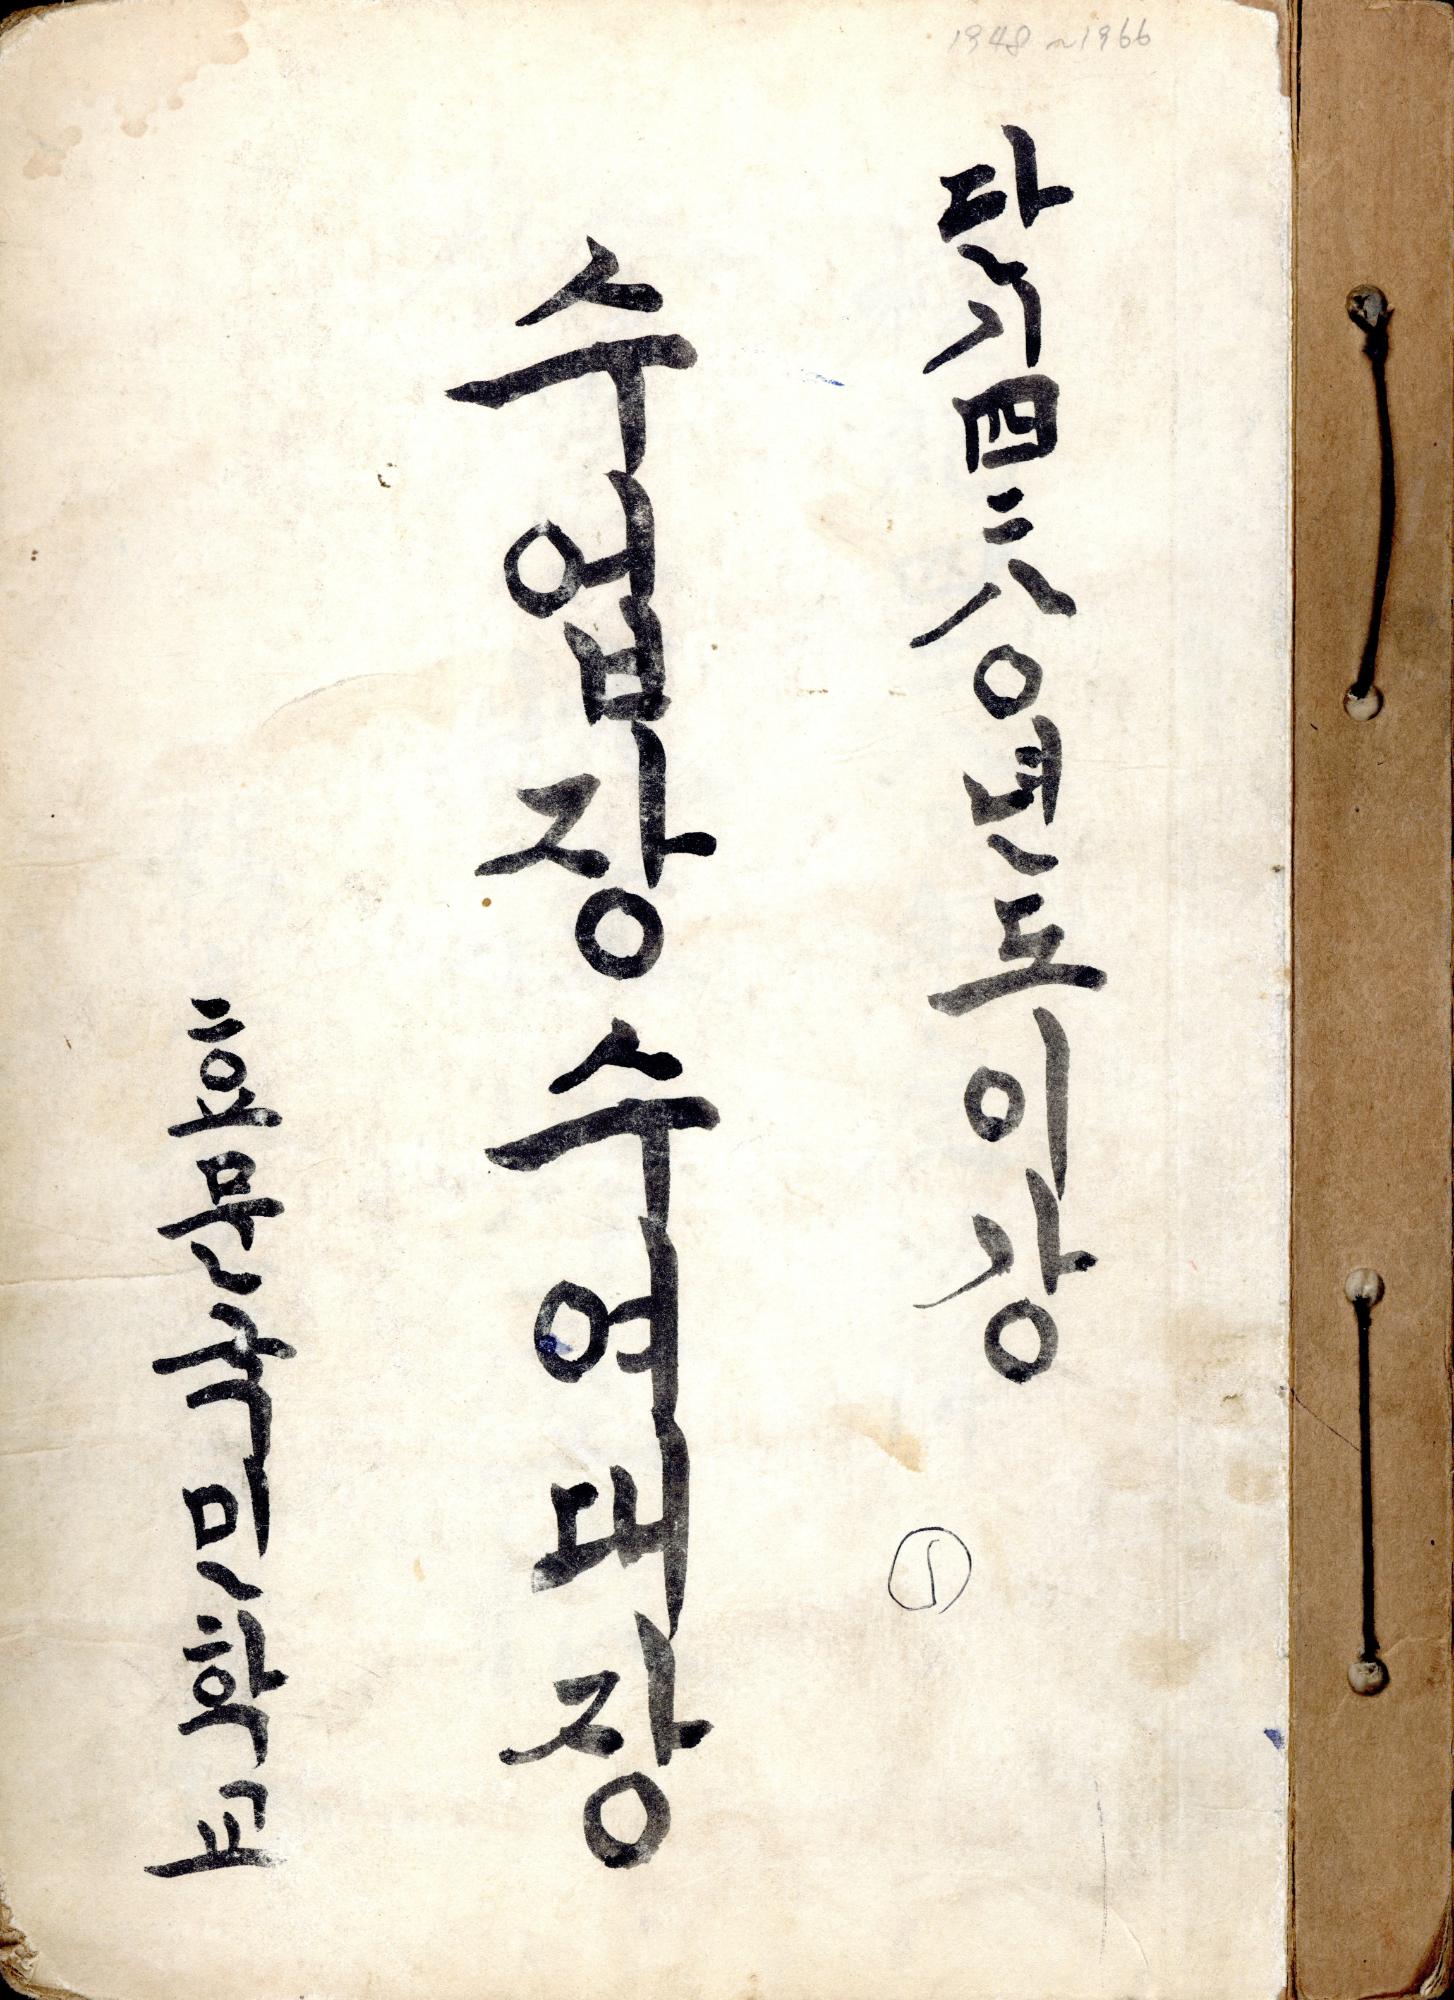 1948~1966
단기四二八〇년도이강
수업장수여대장
효문국민학교